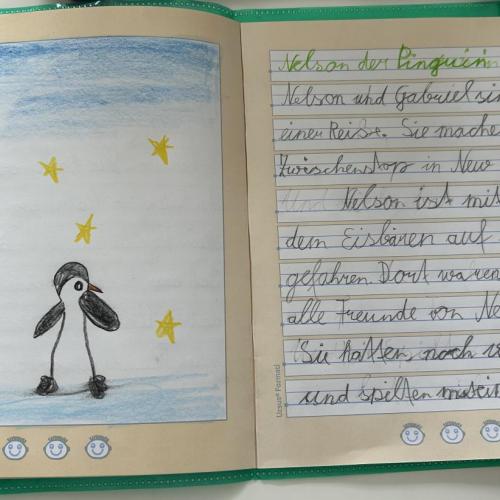 Nelson der Pinguin
Nelson und Gabriel sin
einer Reise. Sie mache
Zwischenstop in New
Und Nelson ist mit
dem Eisbären auf
gefahren. Dort waren
alle Freunde von Ne
Sie hatten noch v
und spilten mitein
Ursus® Format!